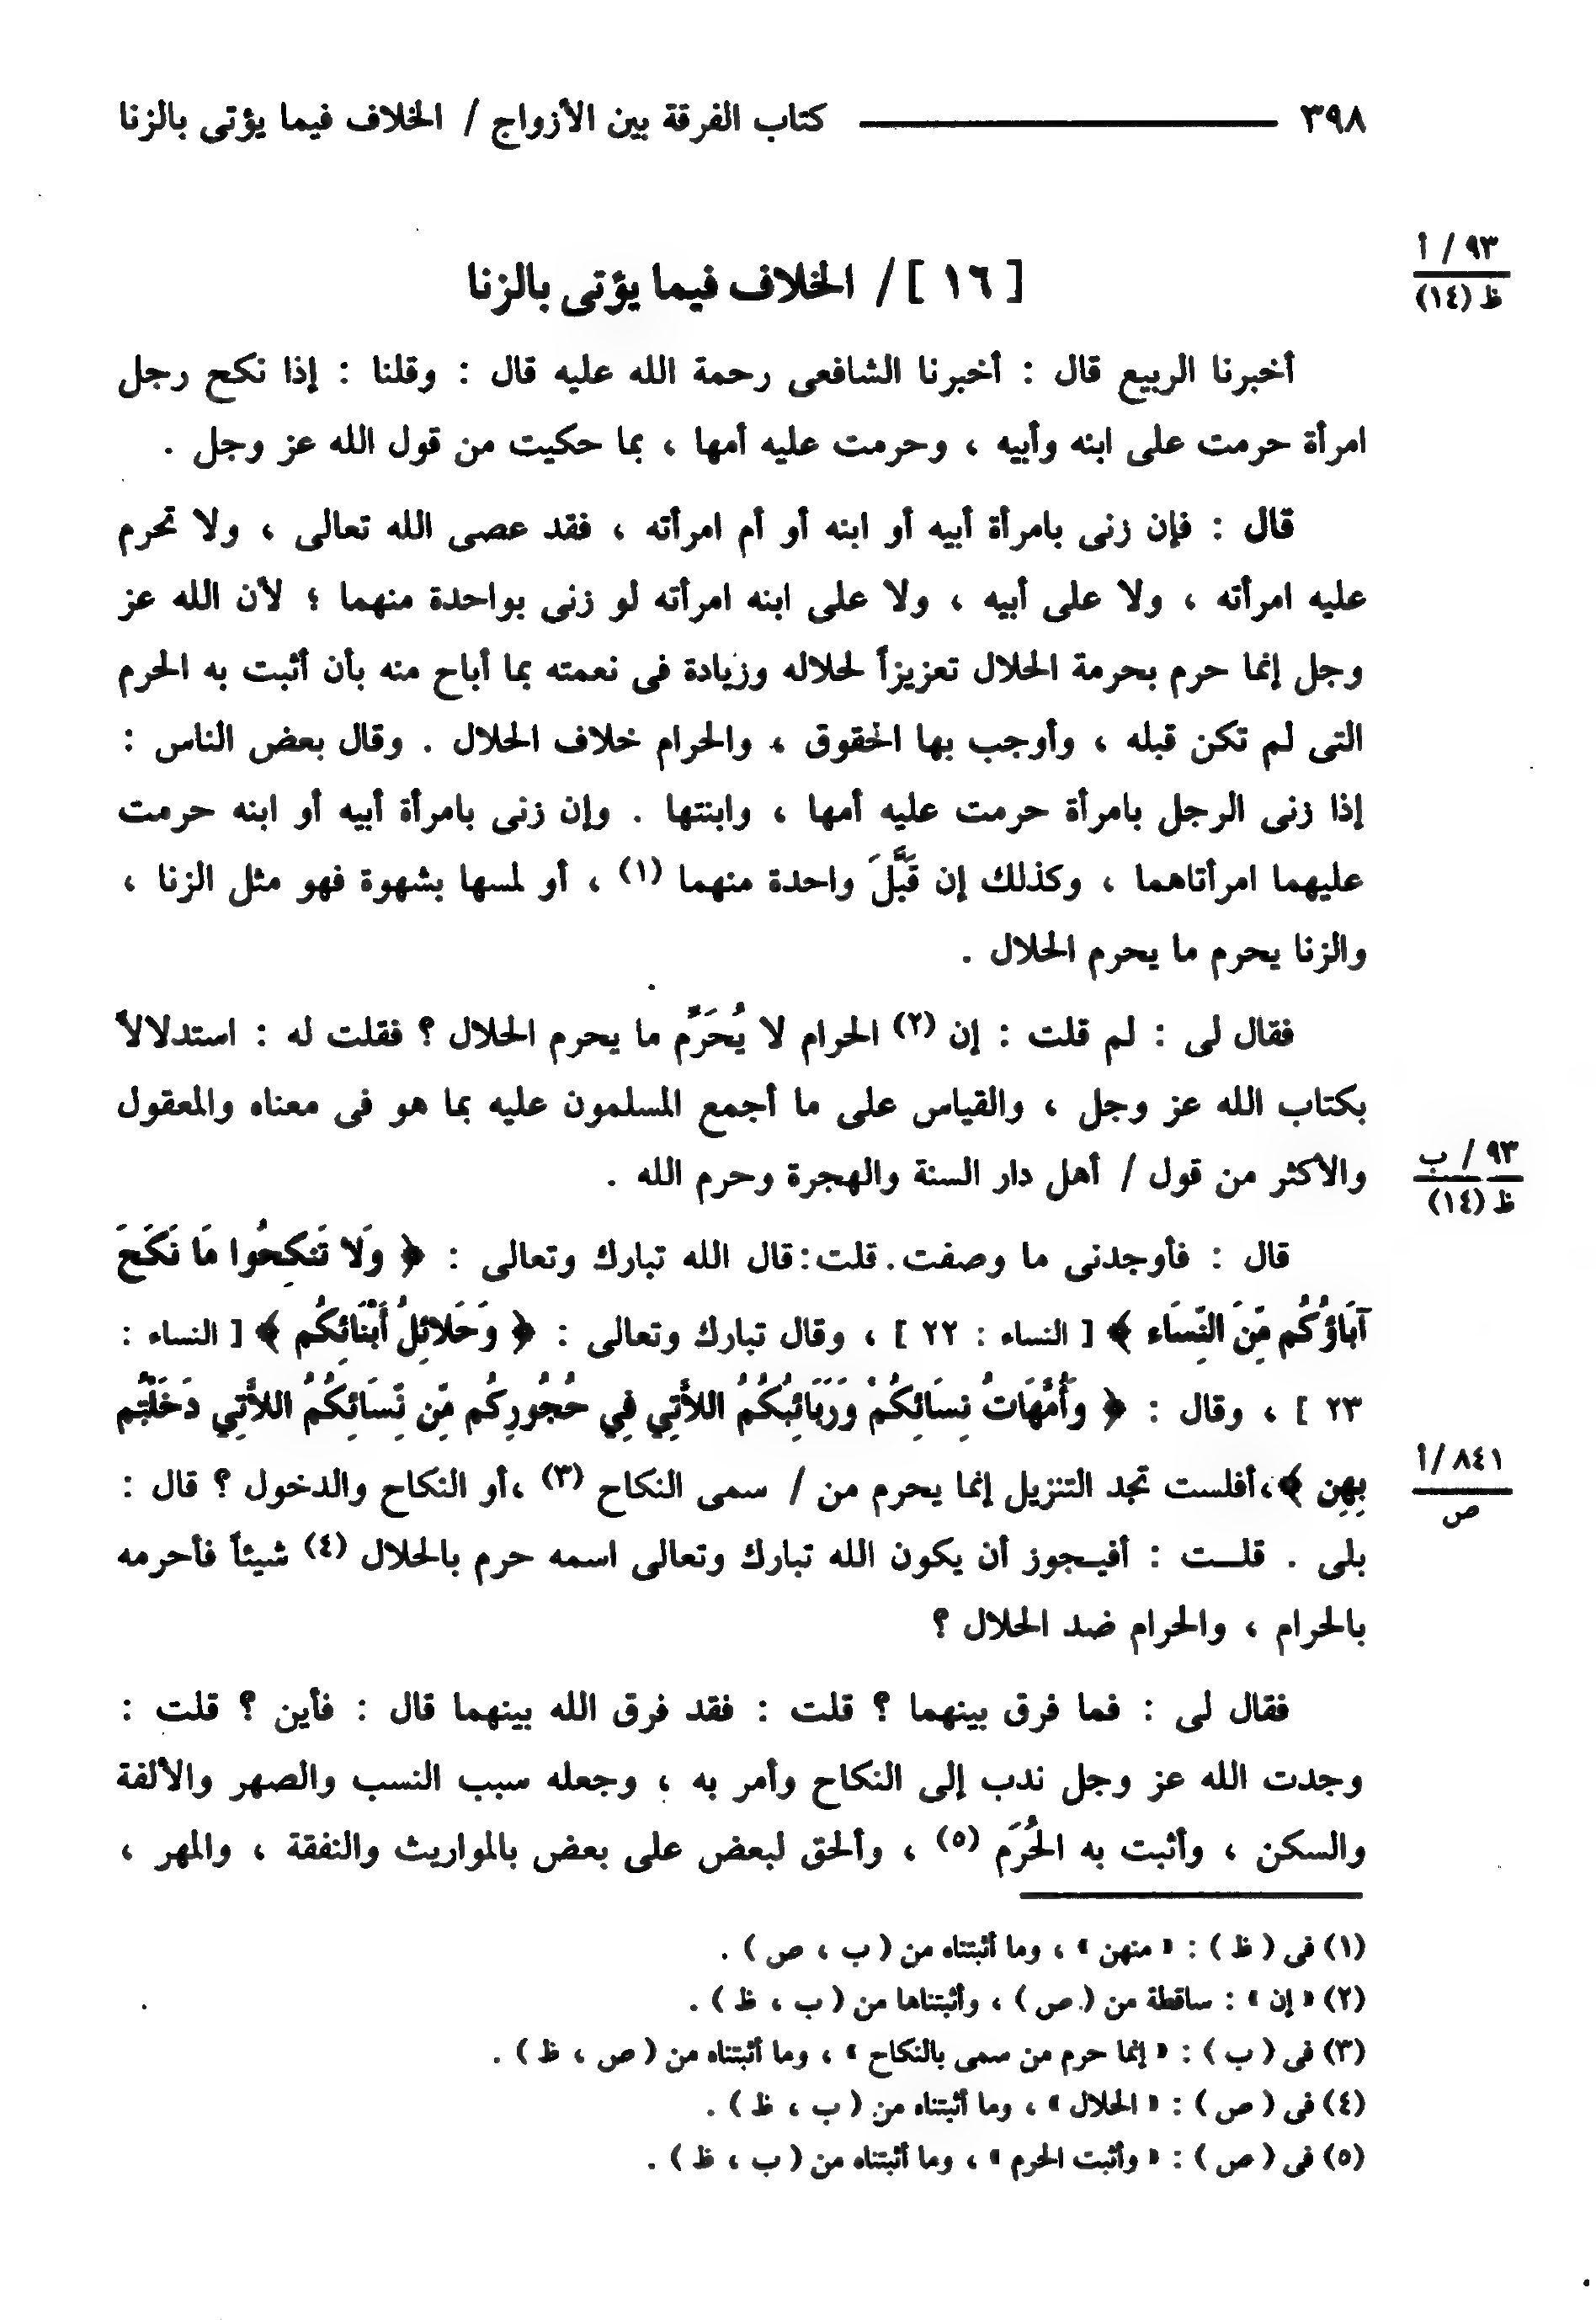 ٣٩٨ كتاب الفرقة بين الأزواج / الخلاف فيما يؤتى بالزنا
٩٣ / أ
ظ (١٤)
[ ١٦ ] / الخلاف فيما يؤتى بالزنا
أخبرنا الربيع قال : أخبرنا الشافعى رحمة الله عليه قال : وقلنا : إذا نكح رجل
امرأة حرمت على ابنه وأبيه ، وحرمت عليه أمها ، بما حكيت من قول الله عز وجل .
قال : فإن زنى بامرأة أبيه أو ابنه أو أم امرأته ، فقد عصى الله تعالى ، ولا تحرم
عليه امرأته ، ولا على أبيه ، ولا على ابنه امرأته لو زنى بواحدة منهما ؛ لأن الله عز
وجل إنما حرم بحرمة الحلال تعزيزاً لحلاله وزيادة فى نعمته بما أباح منه بأن أثبت به الحرم
التى لم تكن قبله ، وأوجب بها الحقوق ، والحرام خلاف الحلال . وقال بعض الناس :
إذا زنى الرجل بامرأة حرمت عليه أمها ، وابنتها . وإن زنى بامرأة أبيه أو ابنه حرمت
عليهما امرأتاهما ، وكذلك إن قَبَّلَ واحدة منهما (١) ، أو لمسها بشهوة فهو مثل الزنا ،
والزنا يحرم ما يحرم الحلال .
فقال لى : لم قلت : إن (٢) الحرام لا يُحَرِّم ما يحرم الحلال ؟ فقلت له : استدلالاً
بكتاب الله عز وجل ، والقياس على ما أجمع المسلمون عليه بما هو فى معناه والمعقول
والأكثر من قول / أهل دار السنة والهجرة وحرم الله .
٩٣ / ب
ظ (١٤)
قال : فأوجدنى ما وصفت . قلت : قال الله تبارك وتعالى : ﴿ وَلا تَنكِحُوا مَا نَكَحَ
آبَاؤُكُم مِّنَ النِّسَاء ﴾ [ النساء : ٢٢ ] ، وقال تبارك وتعالى : ﴿ وَحَلائِلُ أَبْنَائِكُم ﴾ [ النساء :
٢٣ ] ، وقال : ﴿ وَأُمَّهَاتُ نِسَائِكُمْ وَرَبَائِبُكُمُ اللاَّتِي فِي حُجُورِكُم مِّن نِّسَائِكُمُ اللاَّتِي دَخَلْتُم
بِهِن ﴾ ، أفلست تجد التنزيل إنما يحرم من / سمى النكاح (٣) ، أو النكاح والدخول ؟ قال :
٨٤١ / أ
ص
بلى . قلــت : أفيـجوز أن يكون الله تبارك وتعالى اسمه حرم بالحلال (٤) شيئاً فأحرمه
بالحرام ، والحرام ضد الحلال ؟
فقال لى : فما فرق بينهما ؟ قلت : فقد فرق الله بينهما قال : فأين ؟ قلت :
وجدت الله عز وجل ندب إلى النكاح وأمر به ، وجعله سبب النسب والصهر والألفة
والسكن ، وأثبت به الحُرَم (٥) ، وألحق لبعض على بعض بالمواريث والنفقة ، والمهر ،
(١) فى ( ظ ) : « منهن » ، وما أثبتناه من ( ب ، ص ) .
(٢) « إن » : ساقطة من ( ص ) ، وأثبتناها من ( ب ، ظ ) .
(٣) فى ( ب ) : « إنما حرم من سمى بالنكاح » ، وما أثبتناه من ( ص ، ظ ) .
(٤) فى ( ص ) : « الحلال » ، وما أثبتناه من ( ب ، ظ ) .
(٥) فى ( ص ) : « وأثبت الحرم » ، وما أثبتناه من ( ب ، ظ ) .